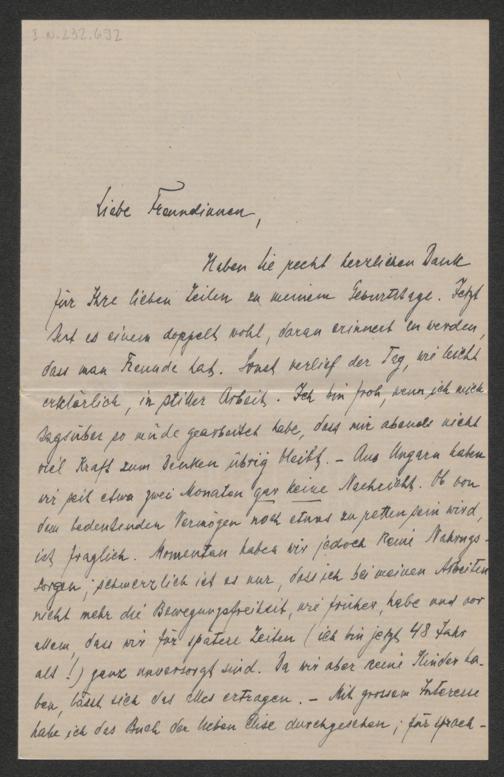 I.N. 232.692
Liebe Freundinnen,
Haben Sie recht herzlichen Dank
für Ihre lieben Zeilen zu meinem Geburtstage. Jetzt
tut es einem doppelt wohl, daran erinnert zu werden,
dass man Freunde hat. Sonst verlief der Tag, wie leicht
erklärlich, in stiller Arbeit. Ich bin froh, wenn ich mich
tagsüber so müde gearbeitet habe, dass mir abends nicht
viel Kraft zum Denken übrig bleibt. – Aus Ungarn haben
wir seit etwa zwei Monaten gar keine Nachricht. Ob von
dem bedeutenden Vermögen noch etwas zu retten sein wird,
ist fraglich. Momentan haben wir jedoch keine Nahrungs-
sorgen; schmerzlich ist es nur, dass ich bei meinen Arbeiten
nicht mehr die Bewegungsfreiheit, wie früher, habe und vor
allem, dass wir für spätere Zeiten (ich bin jetzt 48 Jahr
alt!) ganz unversorgt sind. Da wir aber keine Kinder ha-
ben, lässt sich das alles ertragen. – Mit grossem Interesse
habe ich das Buch der lieben Elise durchgesehen; für sprach-